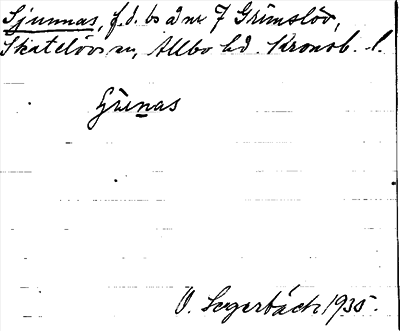 Sjunnas, f.d. bs å nr 7 Grimslöv,
Skatelövs sn, Allbo hd. Kronob. l.
O. Segerbäck 1935.